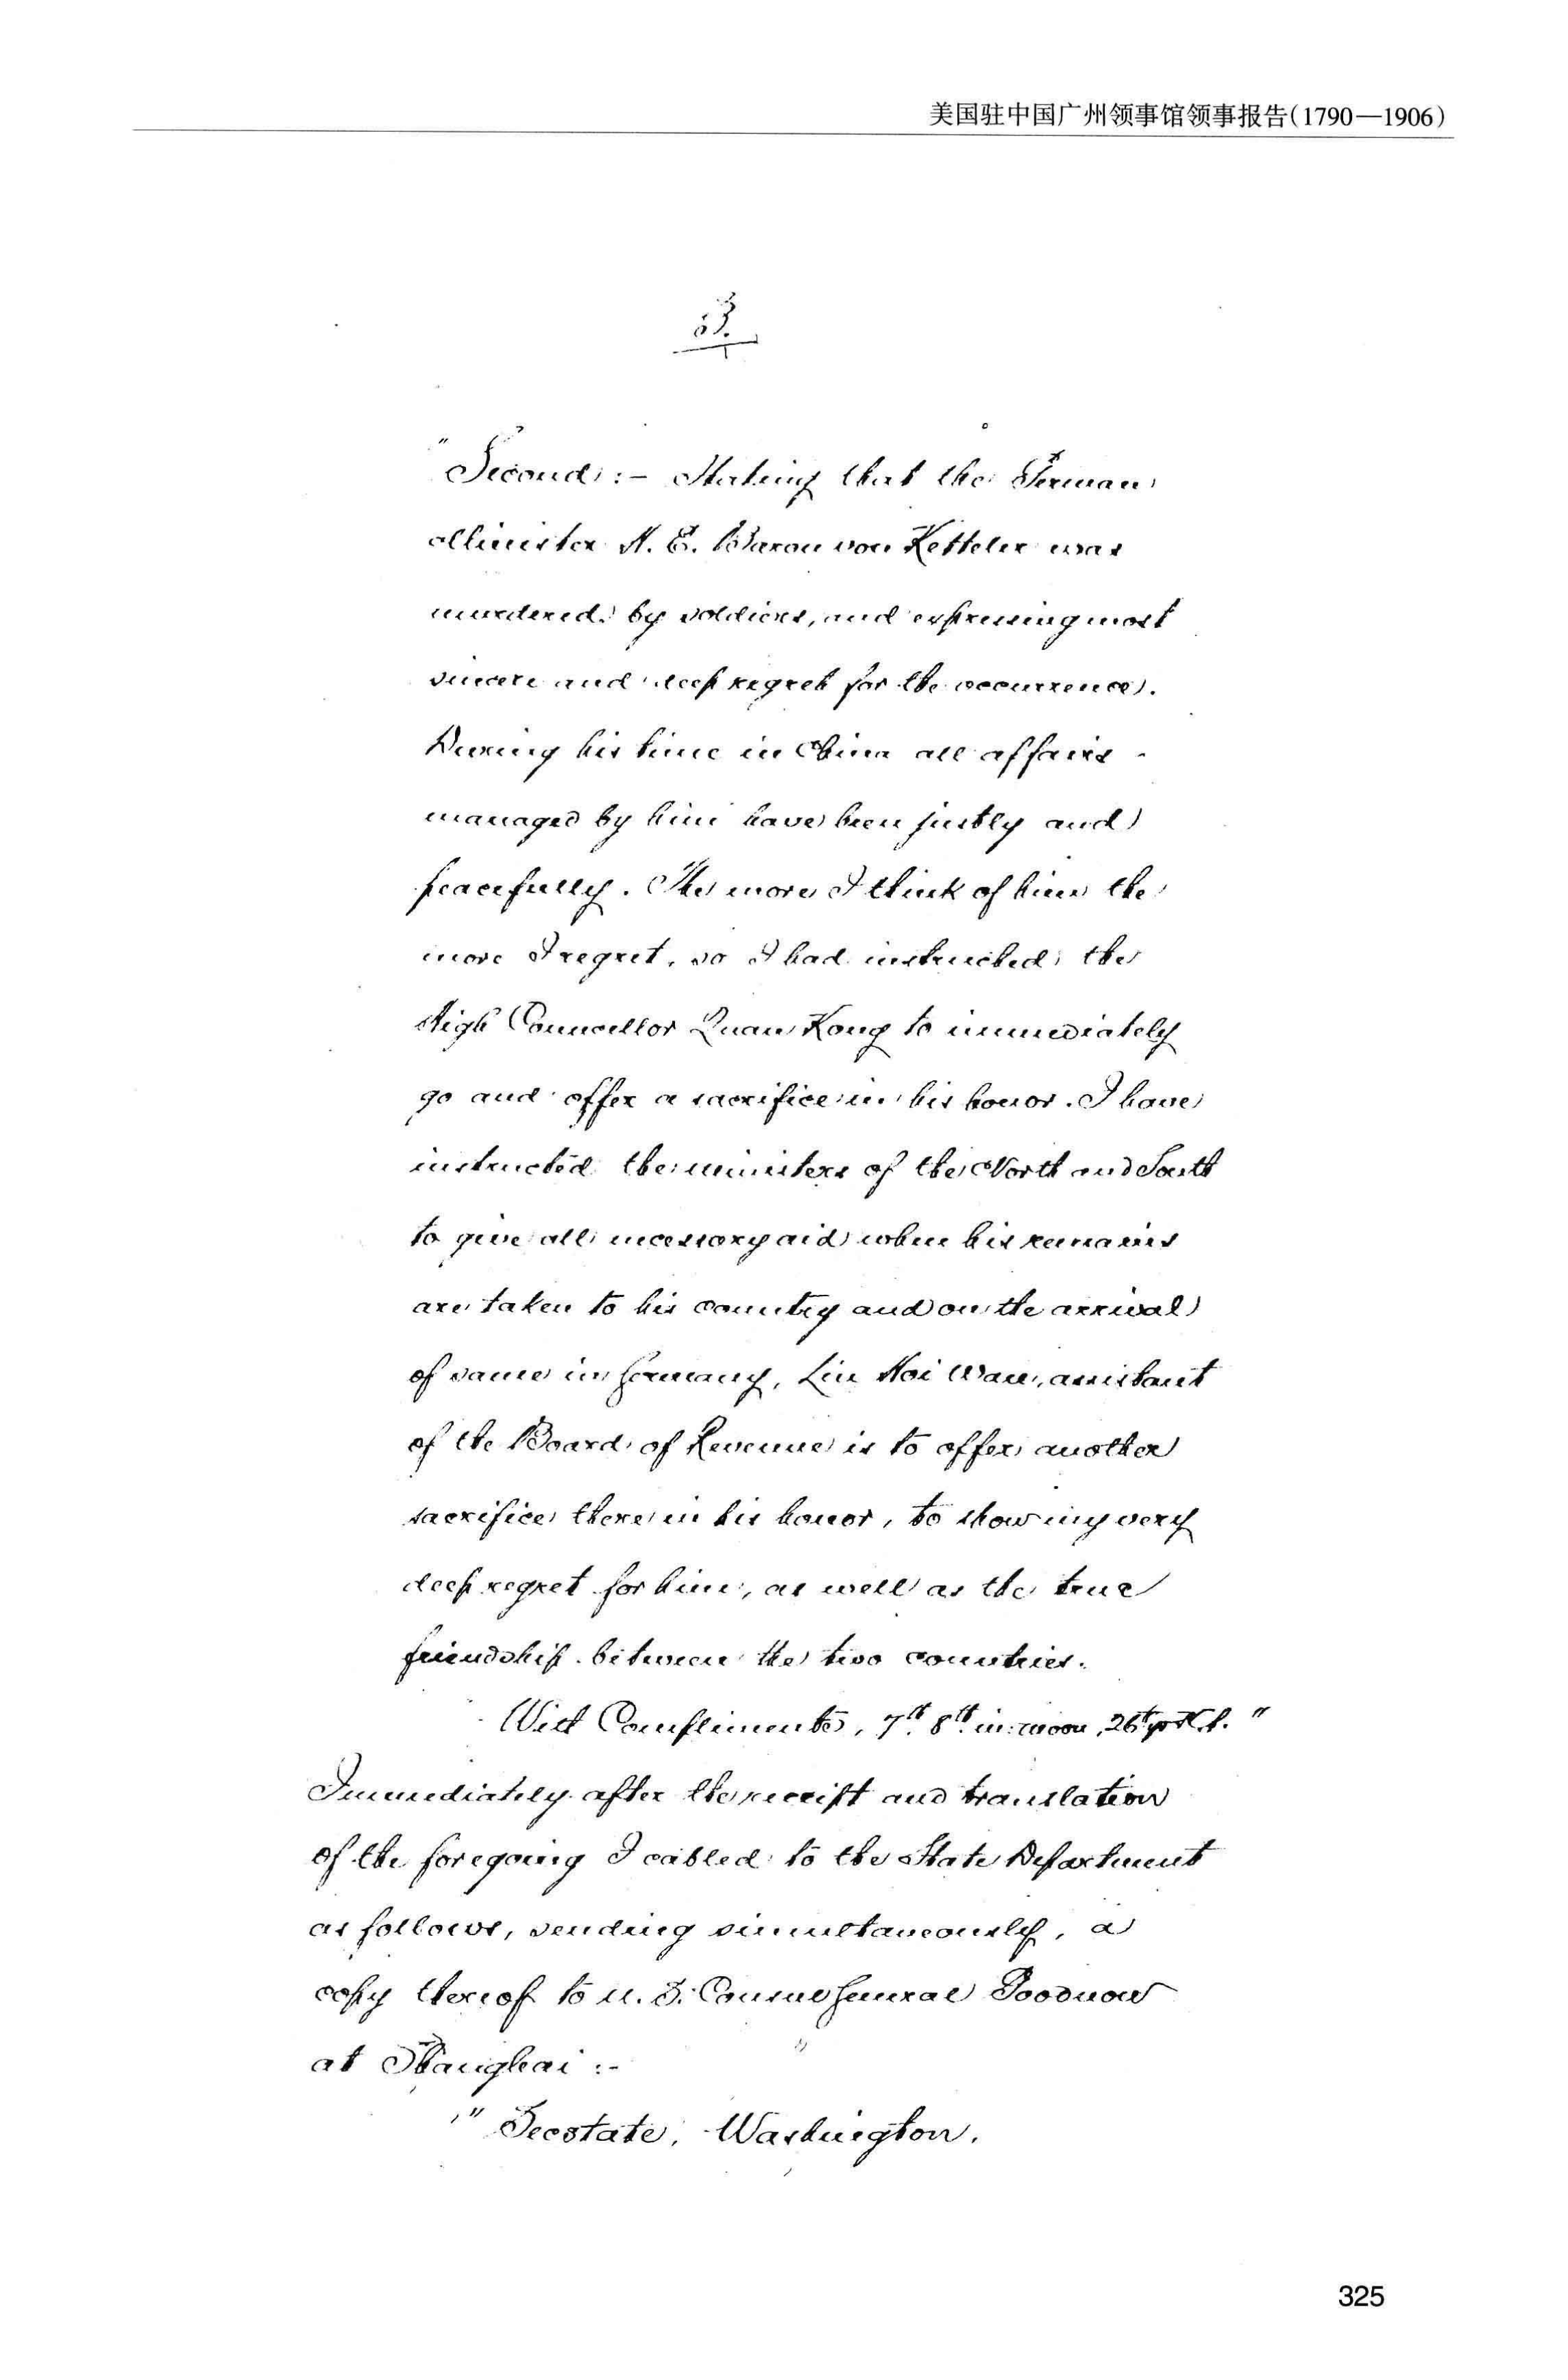 美国驻中国广州领事馆领事报告(1790—1906)
3.
"Second:- Stating that the German
Minister H. E. Baron von Ketteler was
murdered by soldiers, and expressing most
sincere and deep regret for the occurrence.
During his time in China all affairs
managed by him have been justly and
peacefully. The more I think of him the
more I regret, so I had instructed the
High Councellor Quan Kong to immediately
go and offer a sacrifice in his honor. I have
instructed the ministers of the North and South
to give all necessary aid when his remains
are taken to his country and on the arrival
of same in Germany, Lin Hoi Wan, assistant
of the Board of Revenue is to offer another
sacrifice there in his honor, to show my very
deep regret for him, as well as the true
friendship between the two countries.
With Compliments, 7th. 8th. in. moon, 26th yr K.S. "
Immediately after the receipt and translation
of the foregoing I cabled to the State Department
as follows, sending simultaneously, a
copy thereof to U. S. Consul General Goodnow
at Shanghai :-
"Secstate, Washington.
325